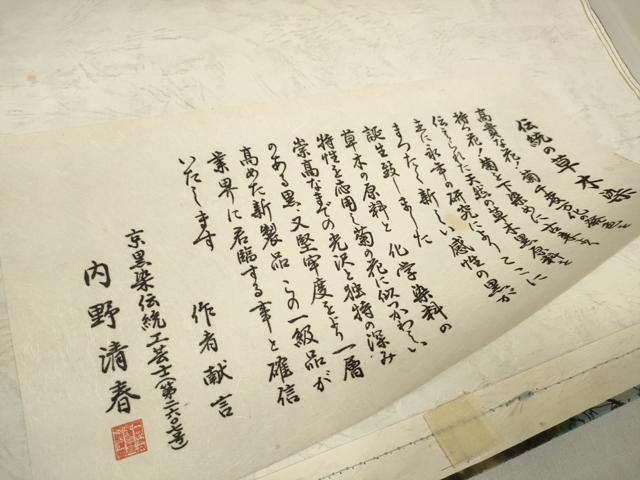 伝統の草木染
高貴な花！菊千
持つ花！菊と下染めに古来から
伝えられた天然の草木黒原料を
主に永年の研究によってここに
まったく新しい感性の黒が
誕生致しました
草木の原料と化学染料の
特性を応用し菊の花に似つかわしい
崇高なまでの光沢と独特の深み
のある黒、又堅牢度をより一層
高めた新製品この一級品が
業界に君臨する事と確信
いたします
作者献言
京黒染伝統工芸士
内野清春